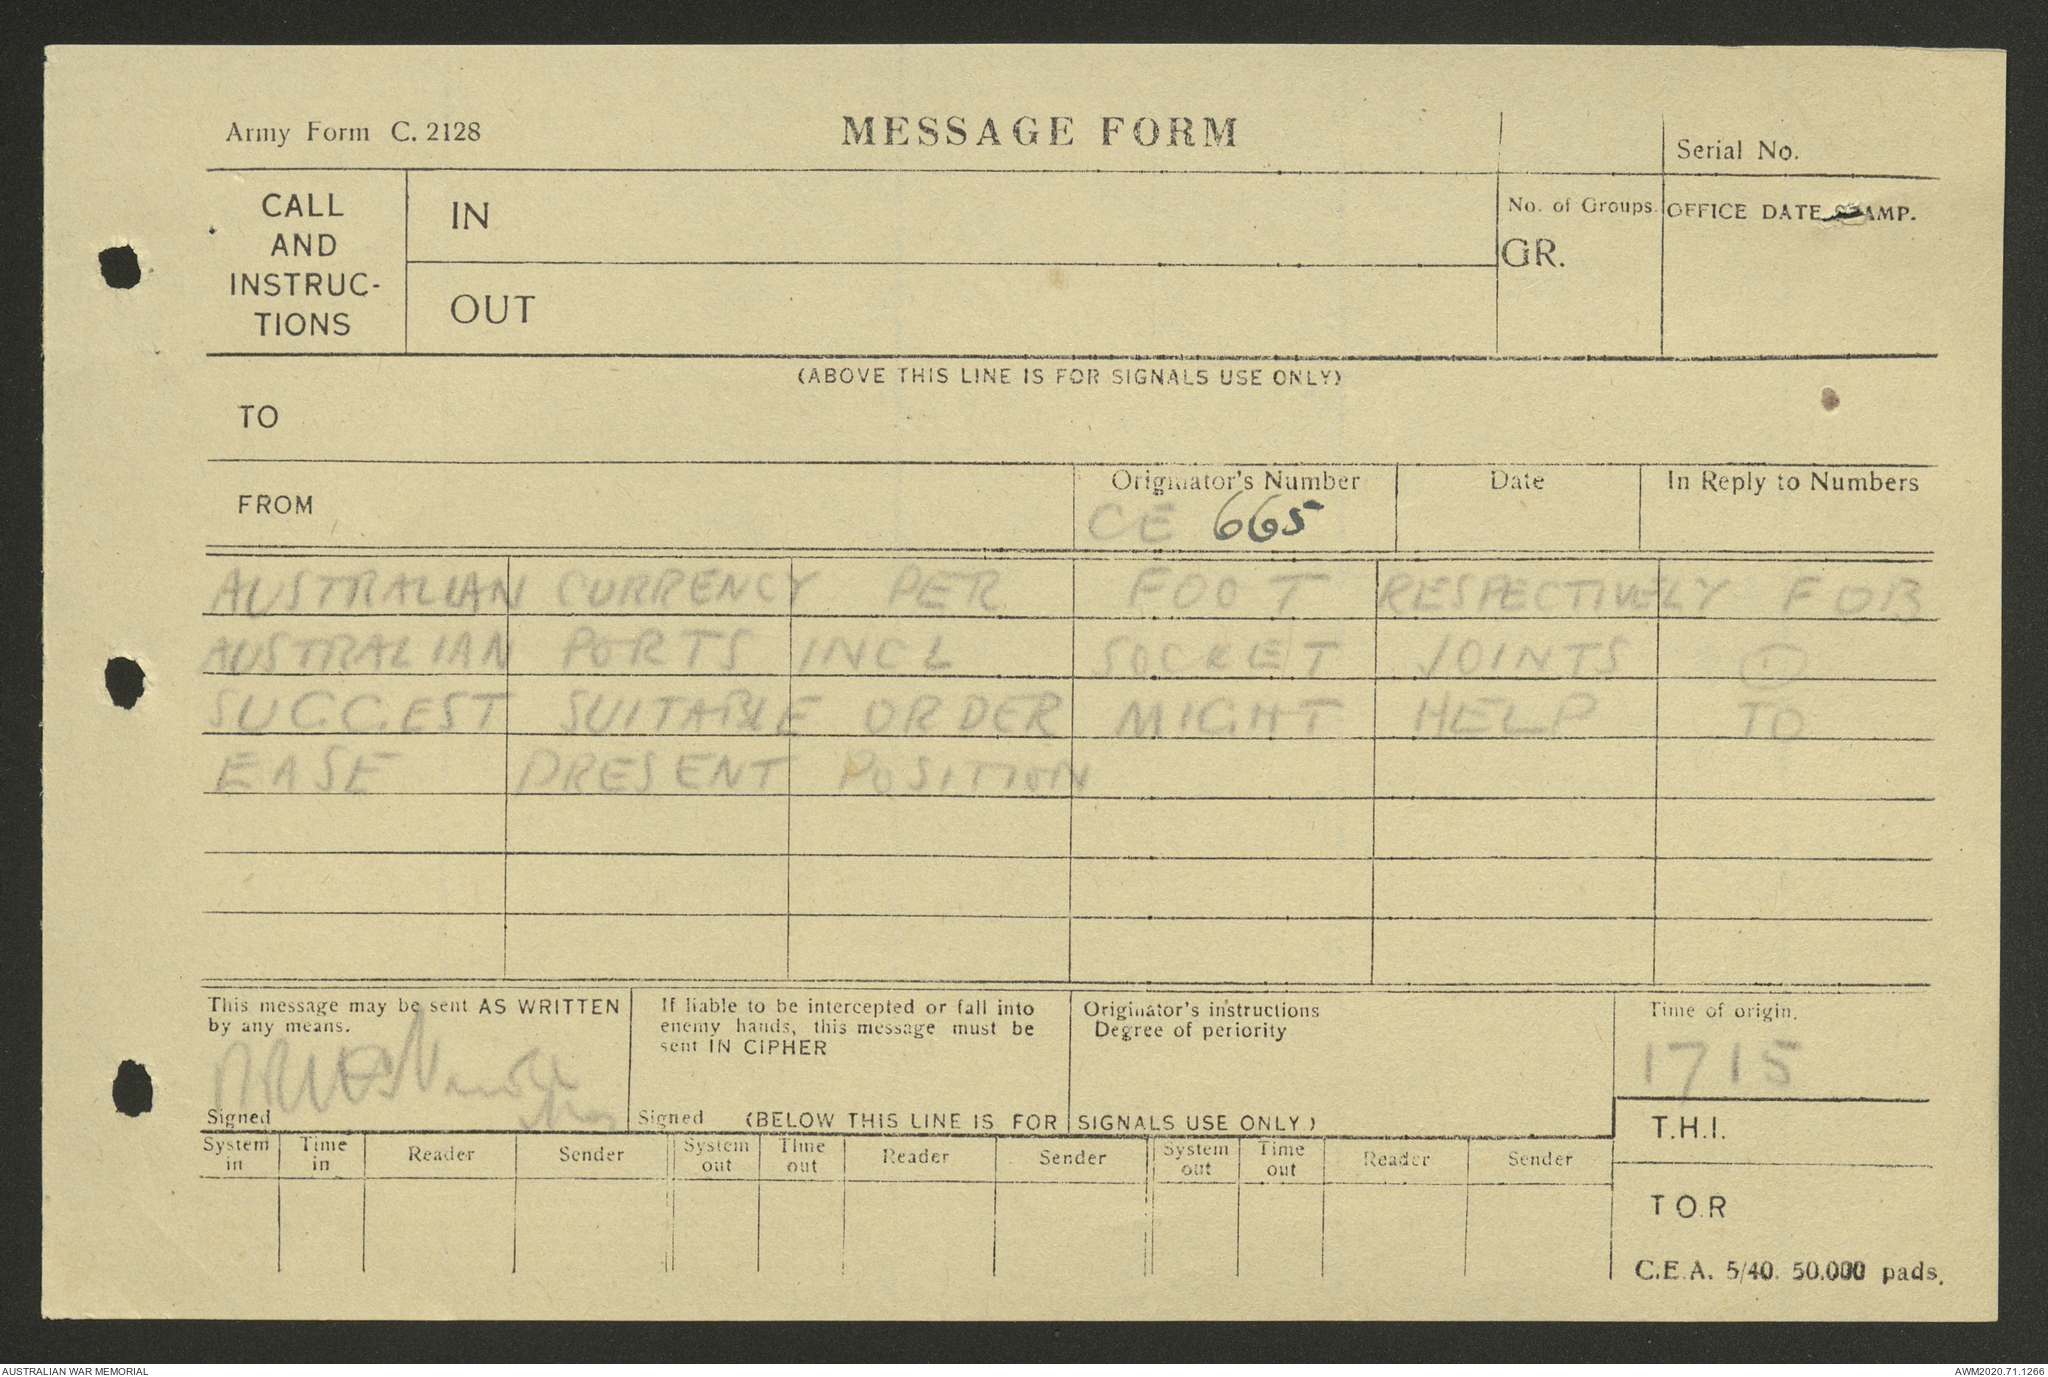 Army Form C. 2128
MESSAGE FORM
Serial No.
CALL
AND
INSTRUC-
TIONS
IN
OUT
No. of Groups.
GR.
OFFICE DATE STAMP.
(ABOVE THIS LINE IS FOR SIGNALS USE ONLY)
TO
FROM
Originator's Number
CE 665
Date
In Reply to Numbers
AUSTRALIAN CURRENCY PER FOOT RESPECTIVELY FOB
AUSTRALIAN PORTS INCL SOCKET JOINTS
SUGGEST SUITABLE ORDER MIGHT HELP TO
EASE PRESENT POSITION
This message may be sent AS WRITTEN
by any means.
Signed
If liable to be intercepted or fall into
enemy hands, this message must be
sent IN CIPHER
Signed
Originator's instructions
Degree of periority
Time of origin.
1715
(BELOW THIS LINE IS FOR SIGNALS USE ONLY)
T.H.I.
System in Time in Reader Sender System out Time out Reader Sender System out Time out Reader Sender
T O.R
C.E.A. 5/40. 50.000 pads.
AUSTRALIAN WAR MEMORIAL
AWM2020.71.1266